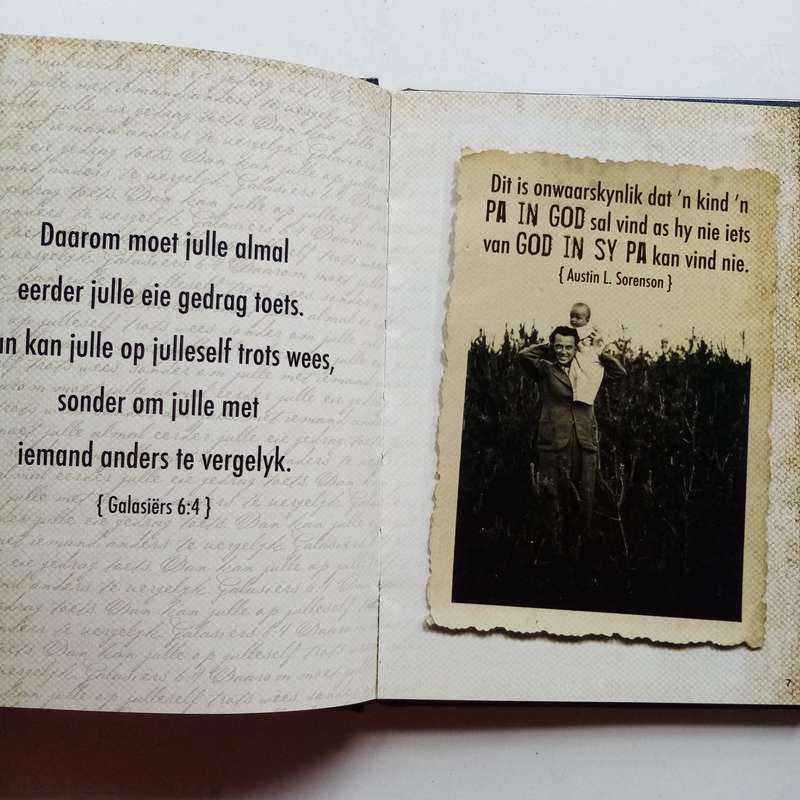 Daarom moet julle almal
eerder julle eie gedrag toets.
kan julle op julleself trots wees,
sonder om julle met
iemand anders te vergelyk.
{ Galasiërs 6:4 }
Dit is onwaarskynlik dat 'n kind 'n
PA IN GOD sal vind as hy nie iets
van GOD IN SY PA kan vind nie.
{ Austin L. Sorenson }
7